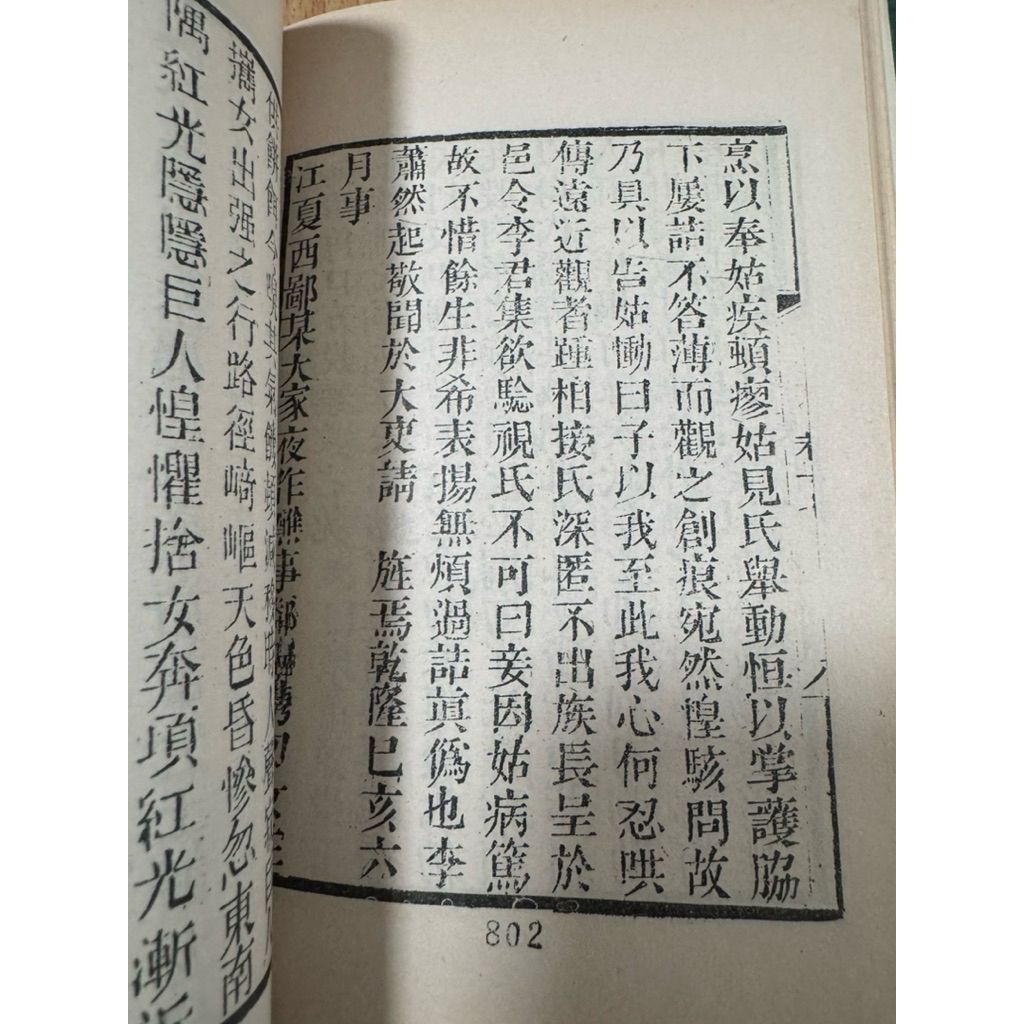 烹以奉姑疾頓瘳姑見氏舉動恒以掌護脇
下屢詰不答薄而觀之創痕宛然惶駭問故
乃具以告姑慟曰子以我至此我心何忍哄
傳遠近觀者踵相接氏深匿不出族長呈於
邑令李君集欲驗視氏不可曰妾因姑病篤
故不惜餘生非希表揚無煩過詰眞僞也李
蕭然起敬聞於大吏請 旌焉乾隆己亥六
月事
江夏西鄙某大家夜作醮事鄰
攜女出强之行路徑崎嶇天色昏慘忽東南
隅紅光隱隱巨人惶懼捨女奔項紅光漸近
802